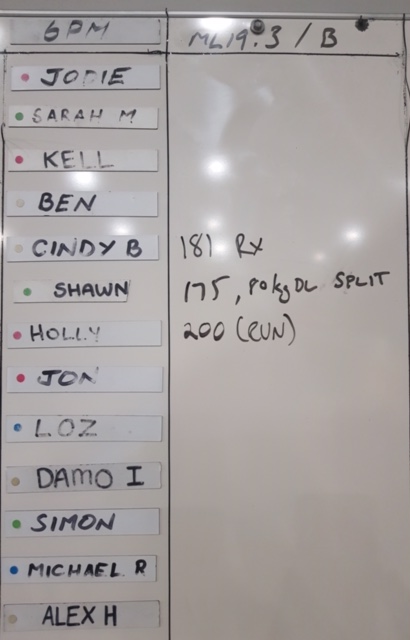 6PM ML19.3 / B
JODIE
SARAH M
KELL
BEN
CINDY B 181 RX
SHAWN 175, 80kg DL SPLIT
HOLLY 200 (RUN)
JON
LOZ
DAMO I
SIMON
MICHAEL R
ALEX H